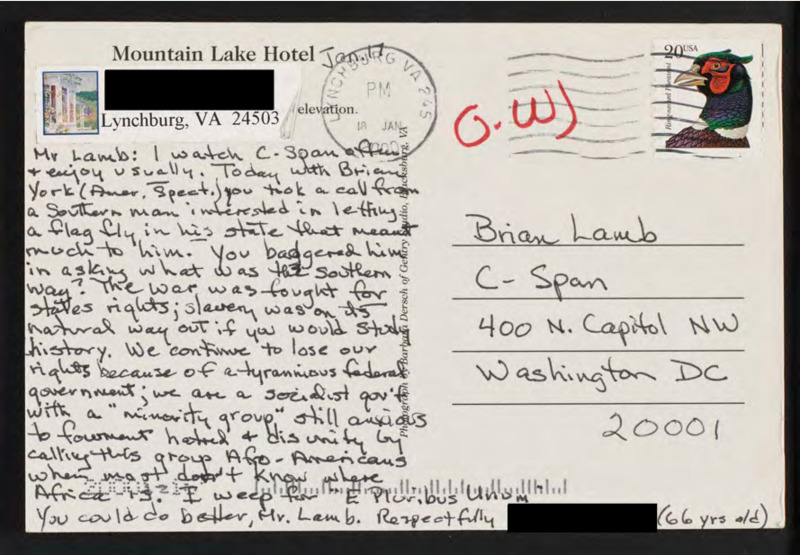 Mountain Lake Hotel Jan. 17
Lynchburg, VA 24503
elevation.
LYNCHBURG VA 245
PM
18 JAN
20USA
Ring-necked Pheasant
G.W)
Mr Lamb: I watch C-Span often
+ enjoy usually. Today with Brian
York (Amer. Spect.) you took a call from
a Southern man interested in letting
a flag fly in his state that meant
much to him. You badgered him
in asking what was the southern
way? The war was fought for
states rights; slavery was on its
natural way out if you would study
history. We continue to lose our
rights because of a tyrannious federal
government; we are a socialist gov't
with a "minority group" still anxious
to foument hatred + disunity by
calling this group Afro-Americans
when most don't know where
Africa is. I weep for "E Pluribus Unum"
You could do better, Mr. Lamb. Respectfully (66 yrs old)
Photograph by Barbara Dersch of Gentry Studio, Blacksburg, VA
Brian Lamb
C-Span
400 N. Capitol NW
Washington DC
20001